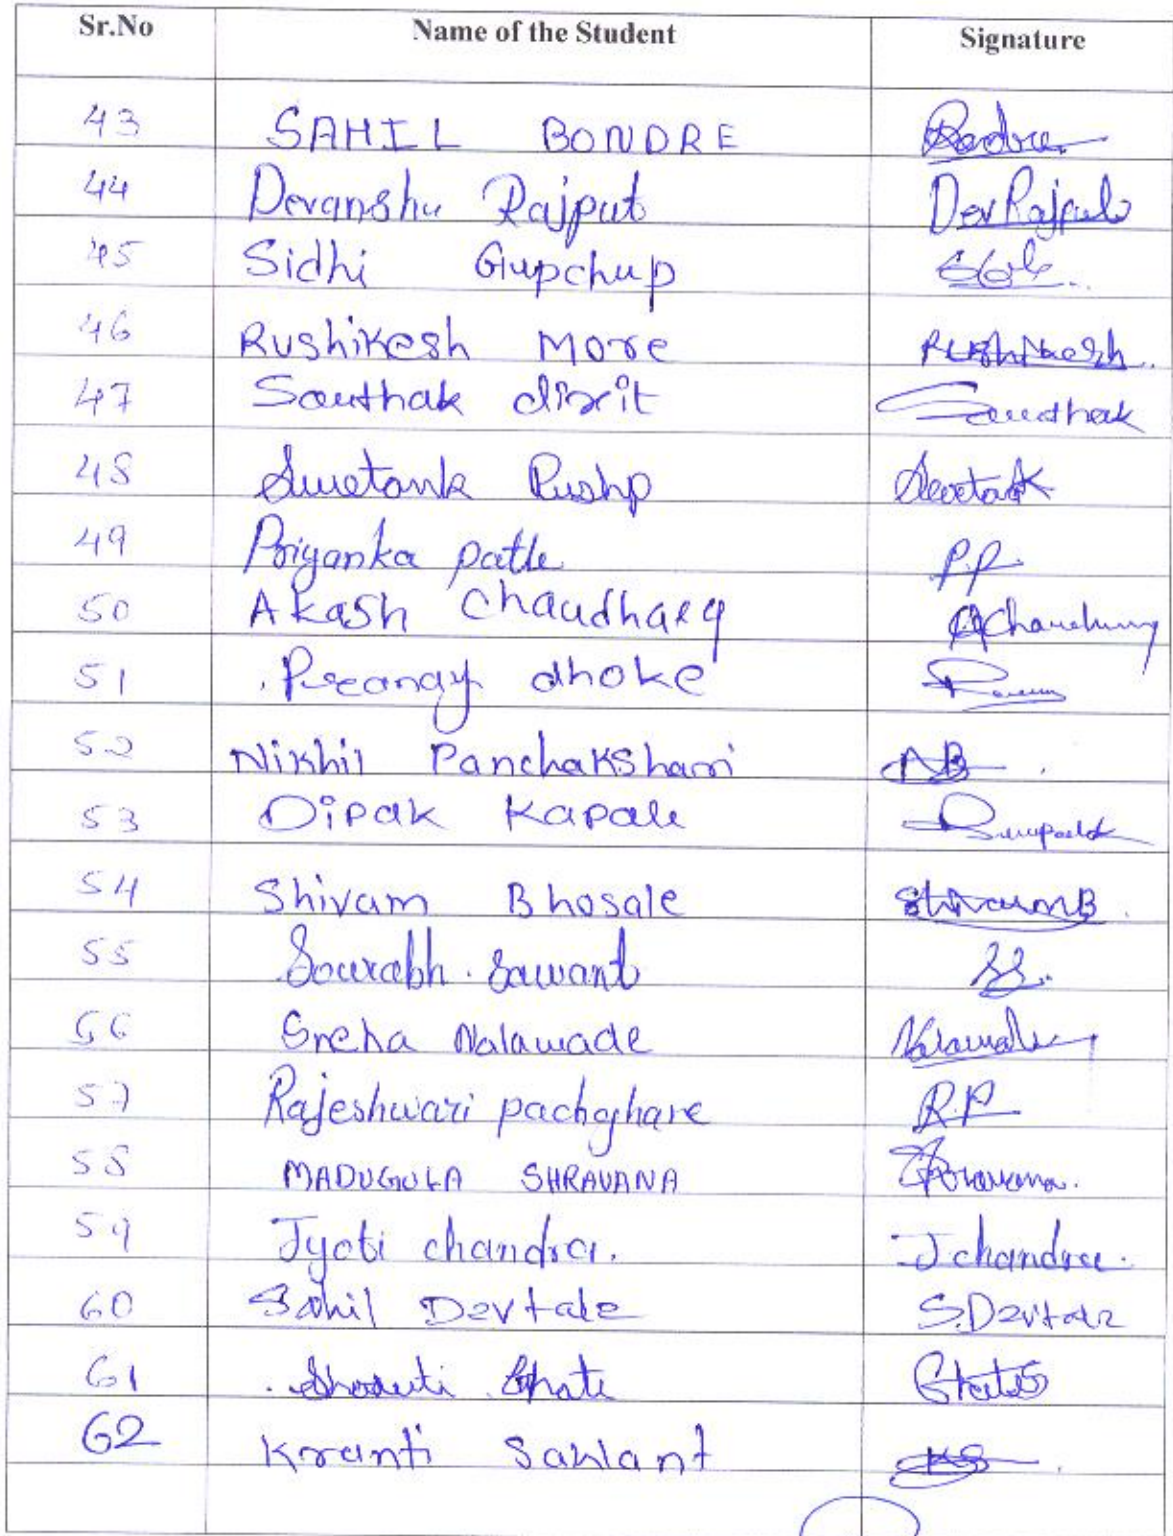 Sr.No Name of the Student Signature
43 SAHIL BONDRE
44 Devanshu Rajput DevRajput
45 Sidhi Gupchup
46 Rushikesh More Rushikesh
47 Sauthak dixit Sauthak
48 Swetank Pushp Swetank
49 Priyanka patle P.P.
50 Akash Chaudhary AChaudhary
51 Pranay dhoke
52 Nikhil Panchakshari
53 Dipak Kapale
54 Shivam Bhosale ShivamB
55 Sourabh Sawant SS.
56 Sneha Nalawade Nalawade
57 Rajeshwari pachghare R.P
58 MADUGULA SHRAVANA Shravana.
59 Jyoti chandra. J chandra.
60 Sahil Devtale S.Devtale
61 Shruti Ghate
62 Kranti Sawant KS